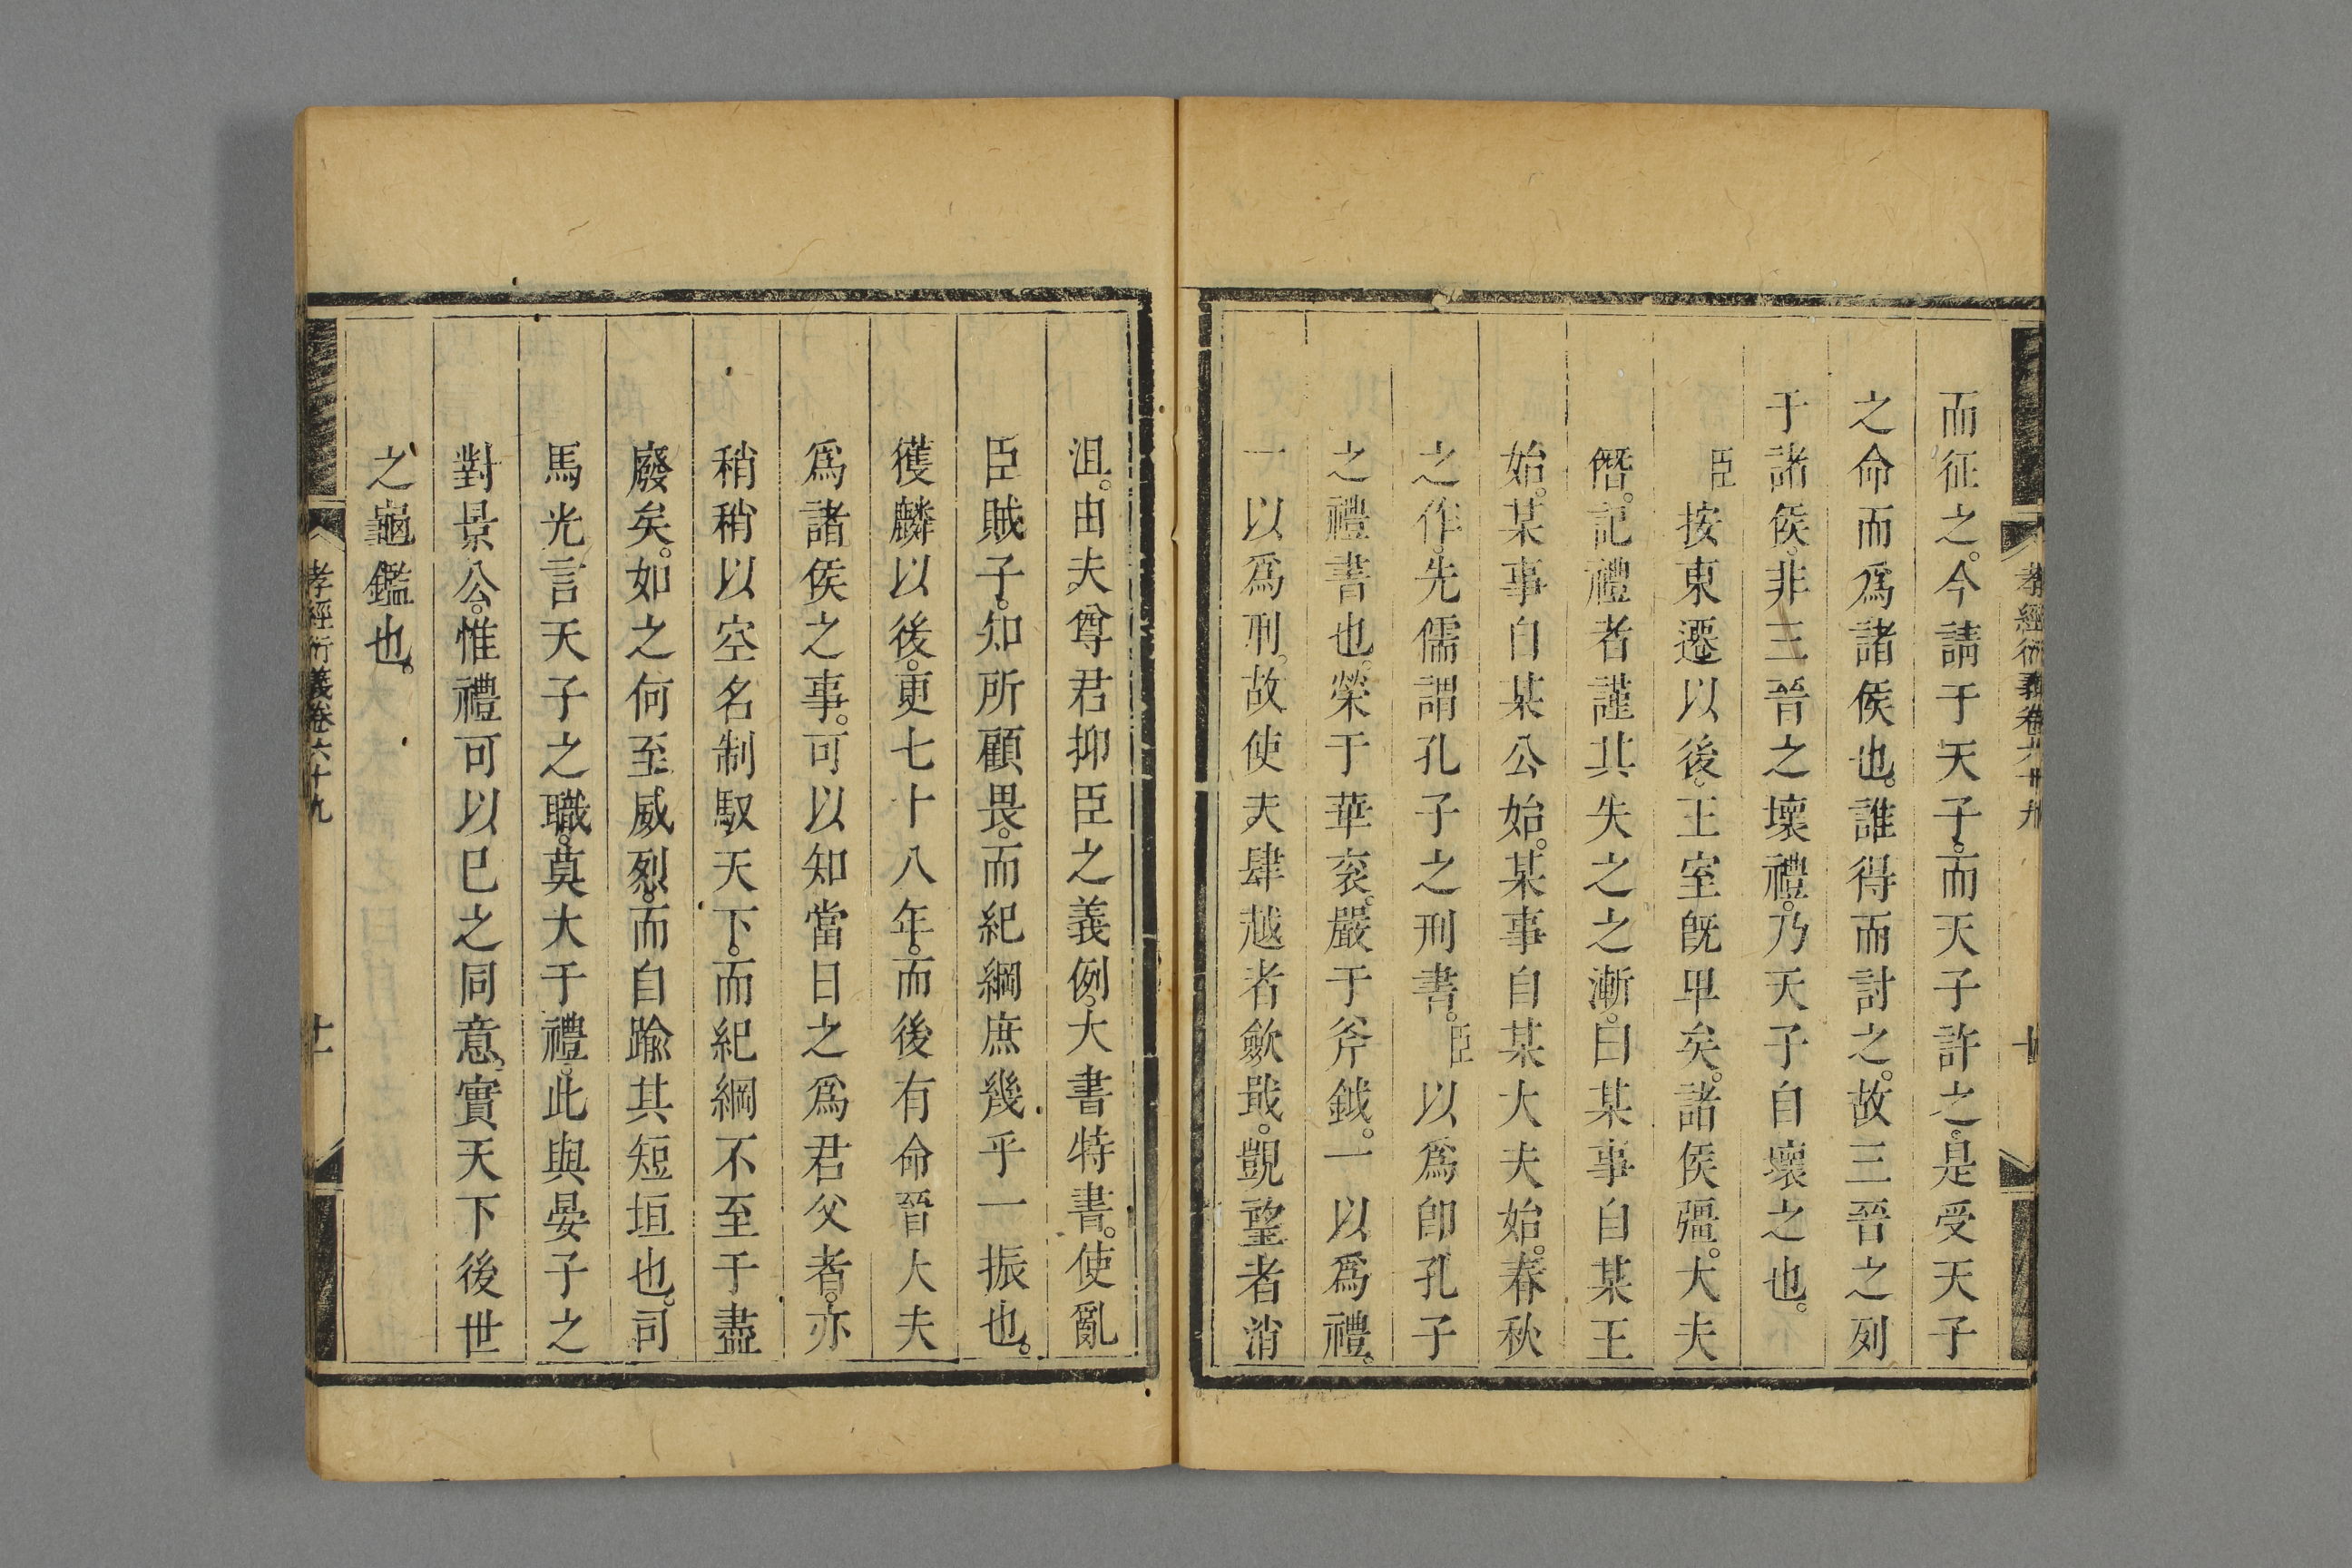 而征之。今請于天子。而天子許之。是受天子
之命而爲諸侯也。誰得而討之。故三晉之列
于諸侯。非三晉之壞禮。乃天子自壞之也。
臣按東遷以後。王室旣卑矣。諸侯彊。大夫
僭。記禮者謹其失之之漸。曰某事自某王
始。某事自某公始。某事自某大夫始。春秋
之作。先儒謂孔子之刑書。臣以爲卽孔子
之禮書也。榮于華衮。嚴于斧鉞。一以爲禮。
一以爲刑。故使夫肆越者歛戢。覬望者消
沮。由夫尊君抑臣之義例。大書特書。使亂
臣賊子。知所顧畏。而紀綱庶幾乎一振也。
獲麟以後。更七十八年。而後有命晉大夫
爲諸侯之事。可以知當日之爲君父者。亦
稍稍以空名制馭天下。而紀綱不至于盡
廢矣。如之何至威烈。而自踰其短垣也。司
馬光言天子之職。莫大于禮。此與晏子之
對景公。惟禮可以已之同意。實天下後世
之龜鑑也。
孝經衍義卷六十九
十一